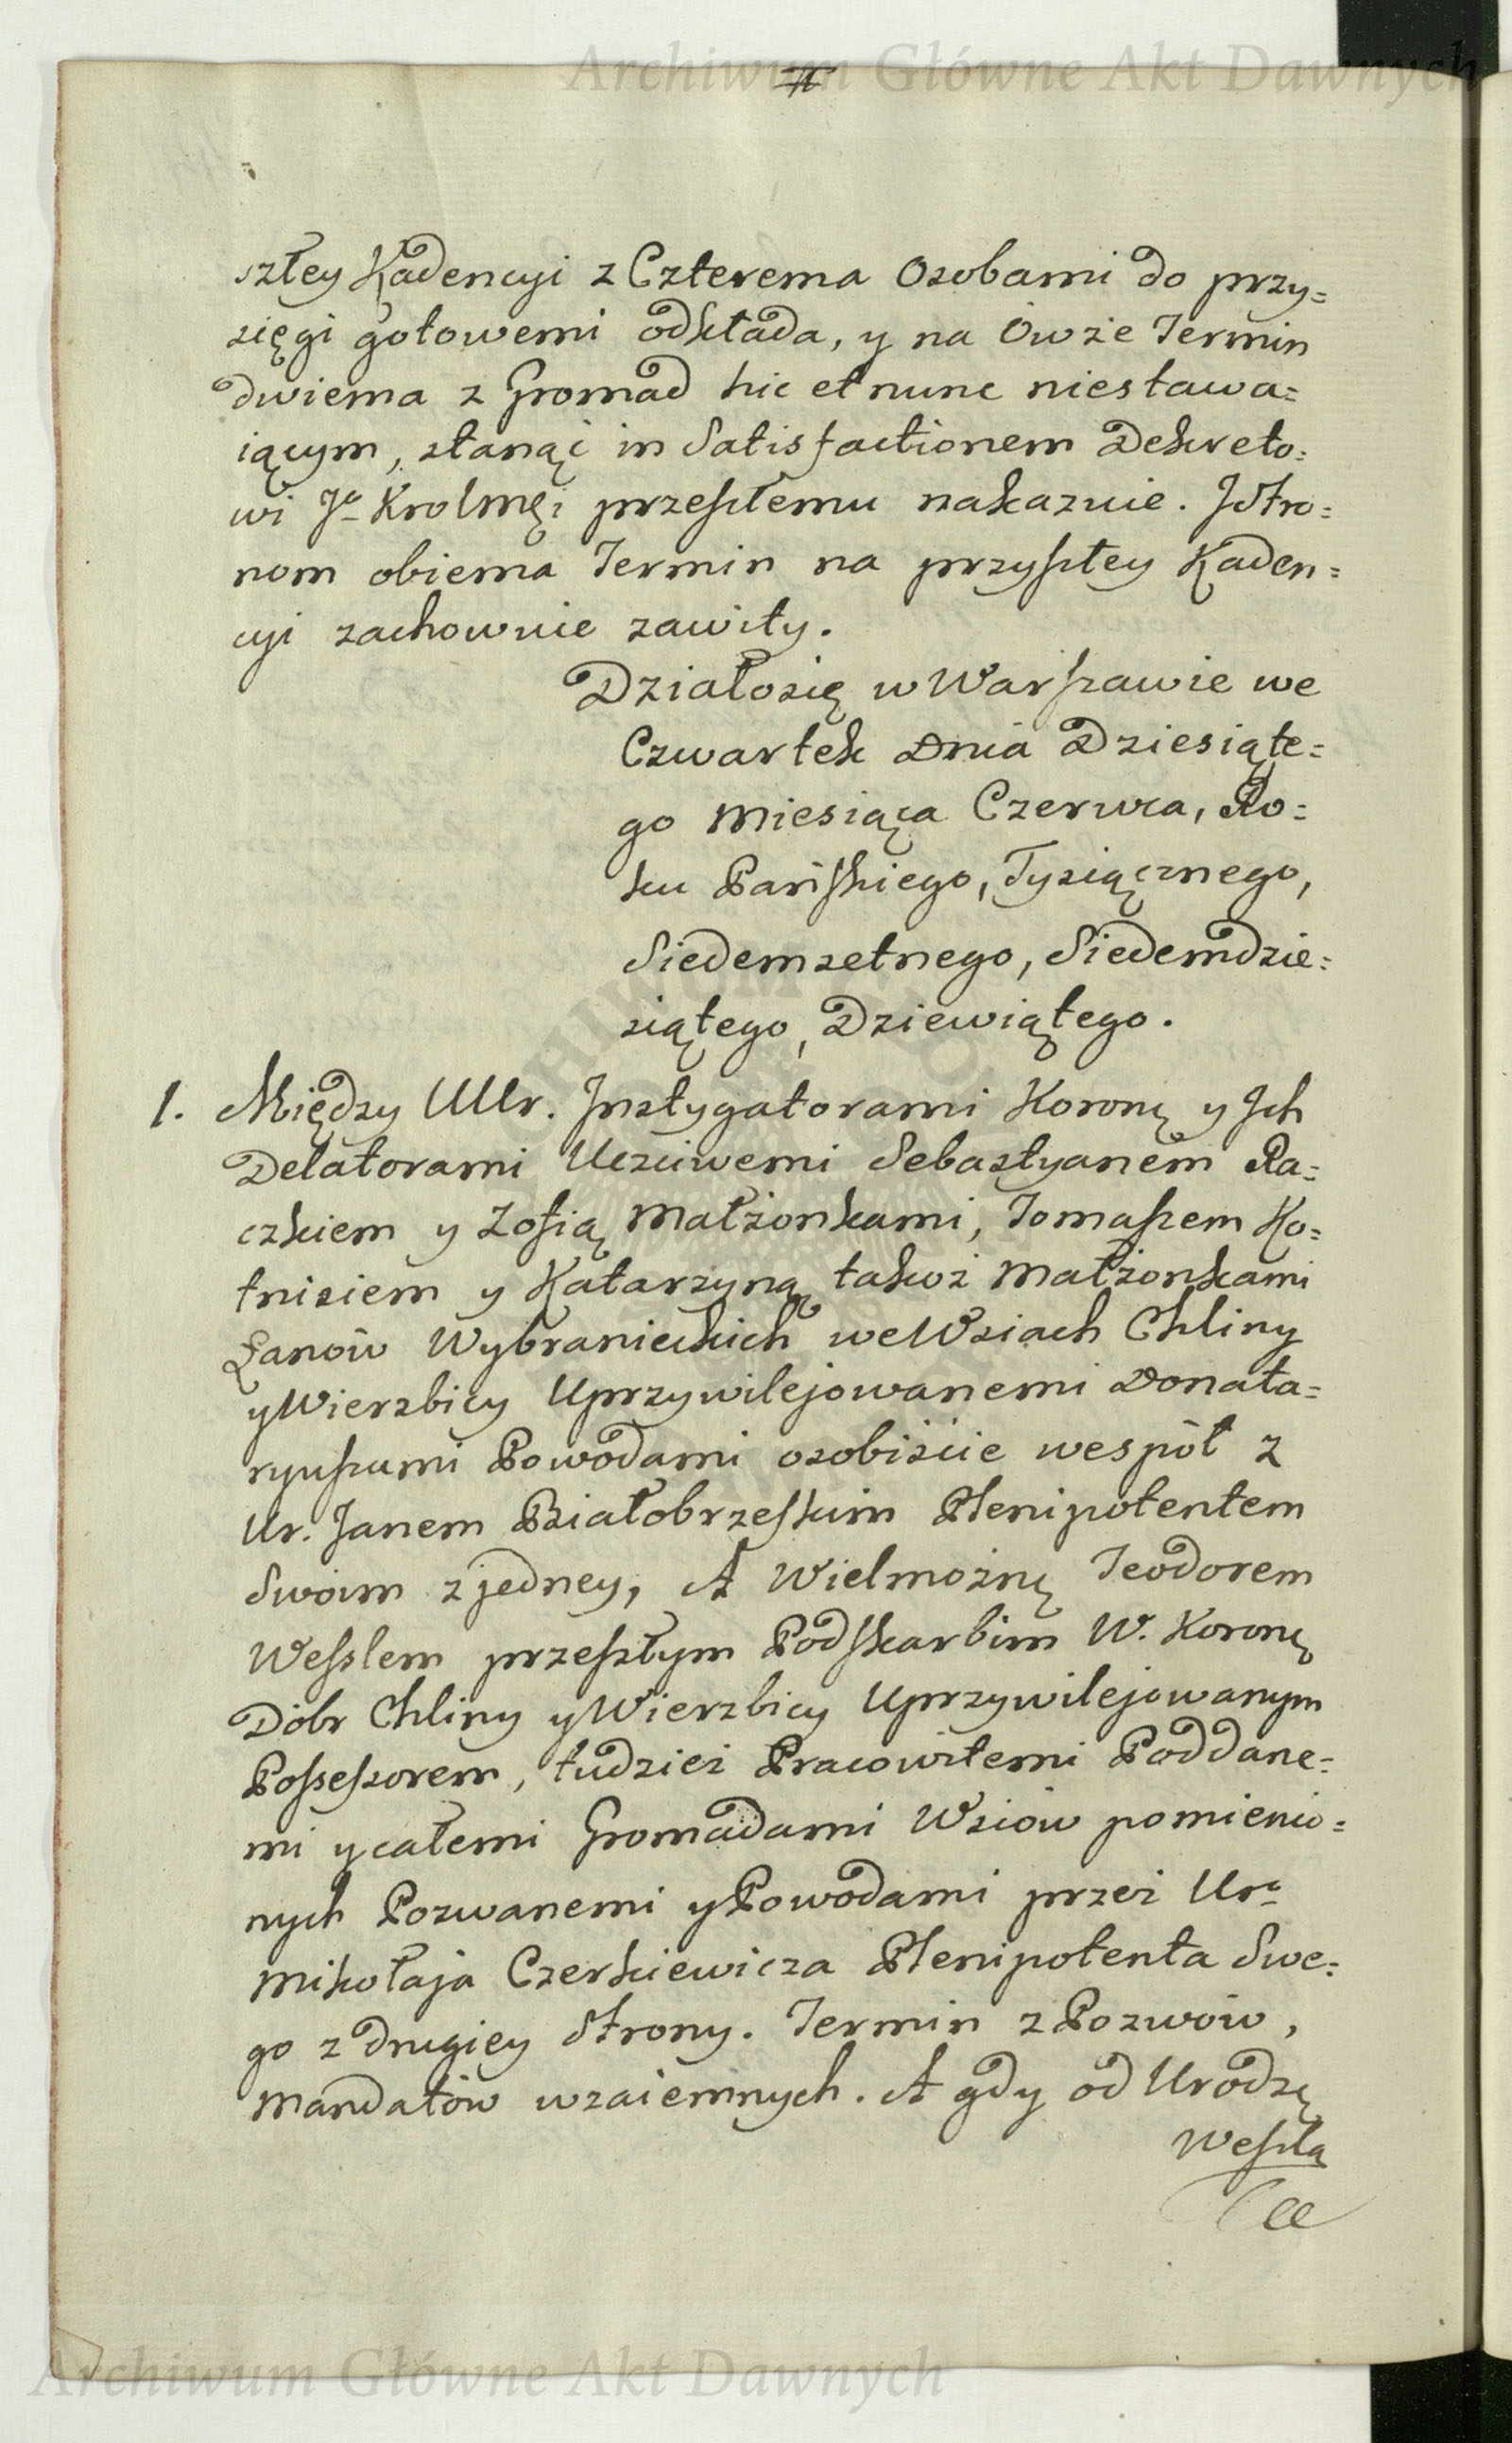 Archiwum Główne Akt Dawnych
szłey Kadencyi z Czterema Osobami do przy=
sięgi gotowemi odkłada, y na Owże Termin
dwiema z Gromad hic et nunc niestawa=
iącym, stanąć in Satisfactionem Dekreto=
wi Jº KrolMći przeszłemu nakazuie. JStro=
nom obiema Termin na przyszłey Kaden=
cyi zachowuie zawity.
Działosię w Warszawie we
Czwartek Dnia Dziesiąte=
go Miesiąca Czerwca, Ro=
ku Pańskiego, Tysiącznego,
Siedemsetnego, Siedemdzie=
siątego, Dziewiątego.
1. Między UUr. Instygatorami Koronę y Ich
Delatorami Uczciwemi Sebastyanem Ra=
czkiem y Zofią Małżonkami, Tomaszem Ko=
tnisiem y Katarzyną takoż Małżonkami
Łanów Wybranieckich we Wsiach Chliny
y Wierzbicy Uprzywilejowanemi Donata=
ryuszami Powodami osobiście wespół z
Ur. Janem Białobrzeskim Plenipotentem
Swoim z jedney, A Wielmożnę Teodorem
Wesslem przeszłym Podskarbim W. Koronę
Dóbr Chliny y Wierzbicy Uprzywilejowanym
Possessorem, tudzież Pracowitemi Poddane=
mi y całemi Gromadami Wsiów pomienio=
nych Pozwanemi y Powodami przez Urº
Mikołaja Czerkiewicza Plenipotenta Swe=
go z drugiey Strony. Termin z Pozwów,
Mandatów wzaiemnych. A gdy od Urodzę
Weszla
Archiwum Główne Akt Dawnych